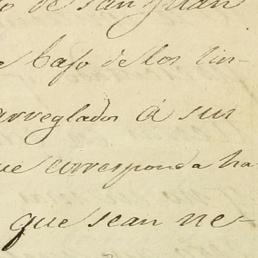 o de San Juan
e bajo de los lin-
arreglados á sus
ue corresponda ha-
que sean ne-